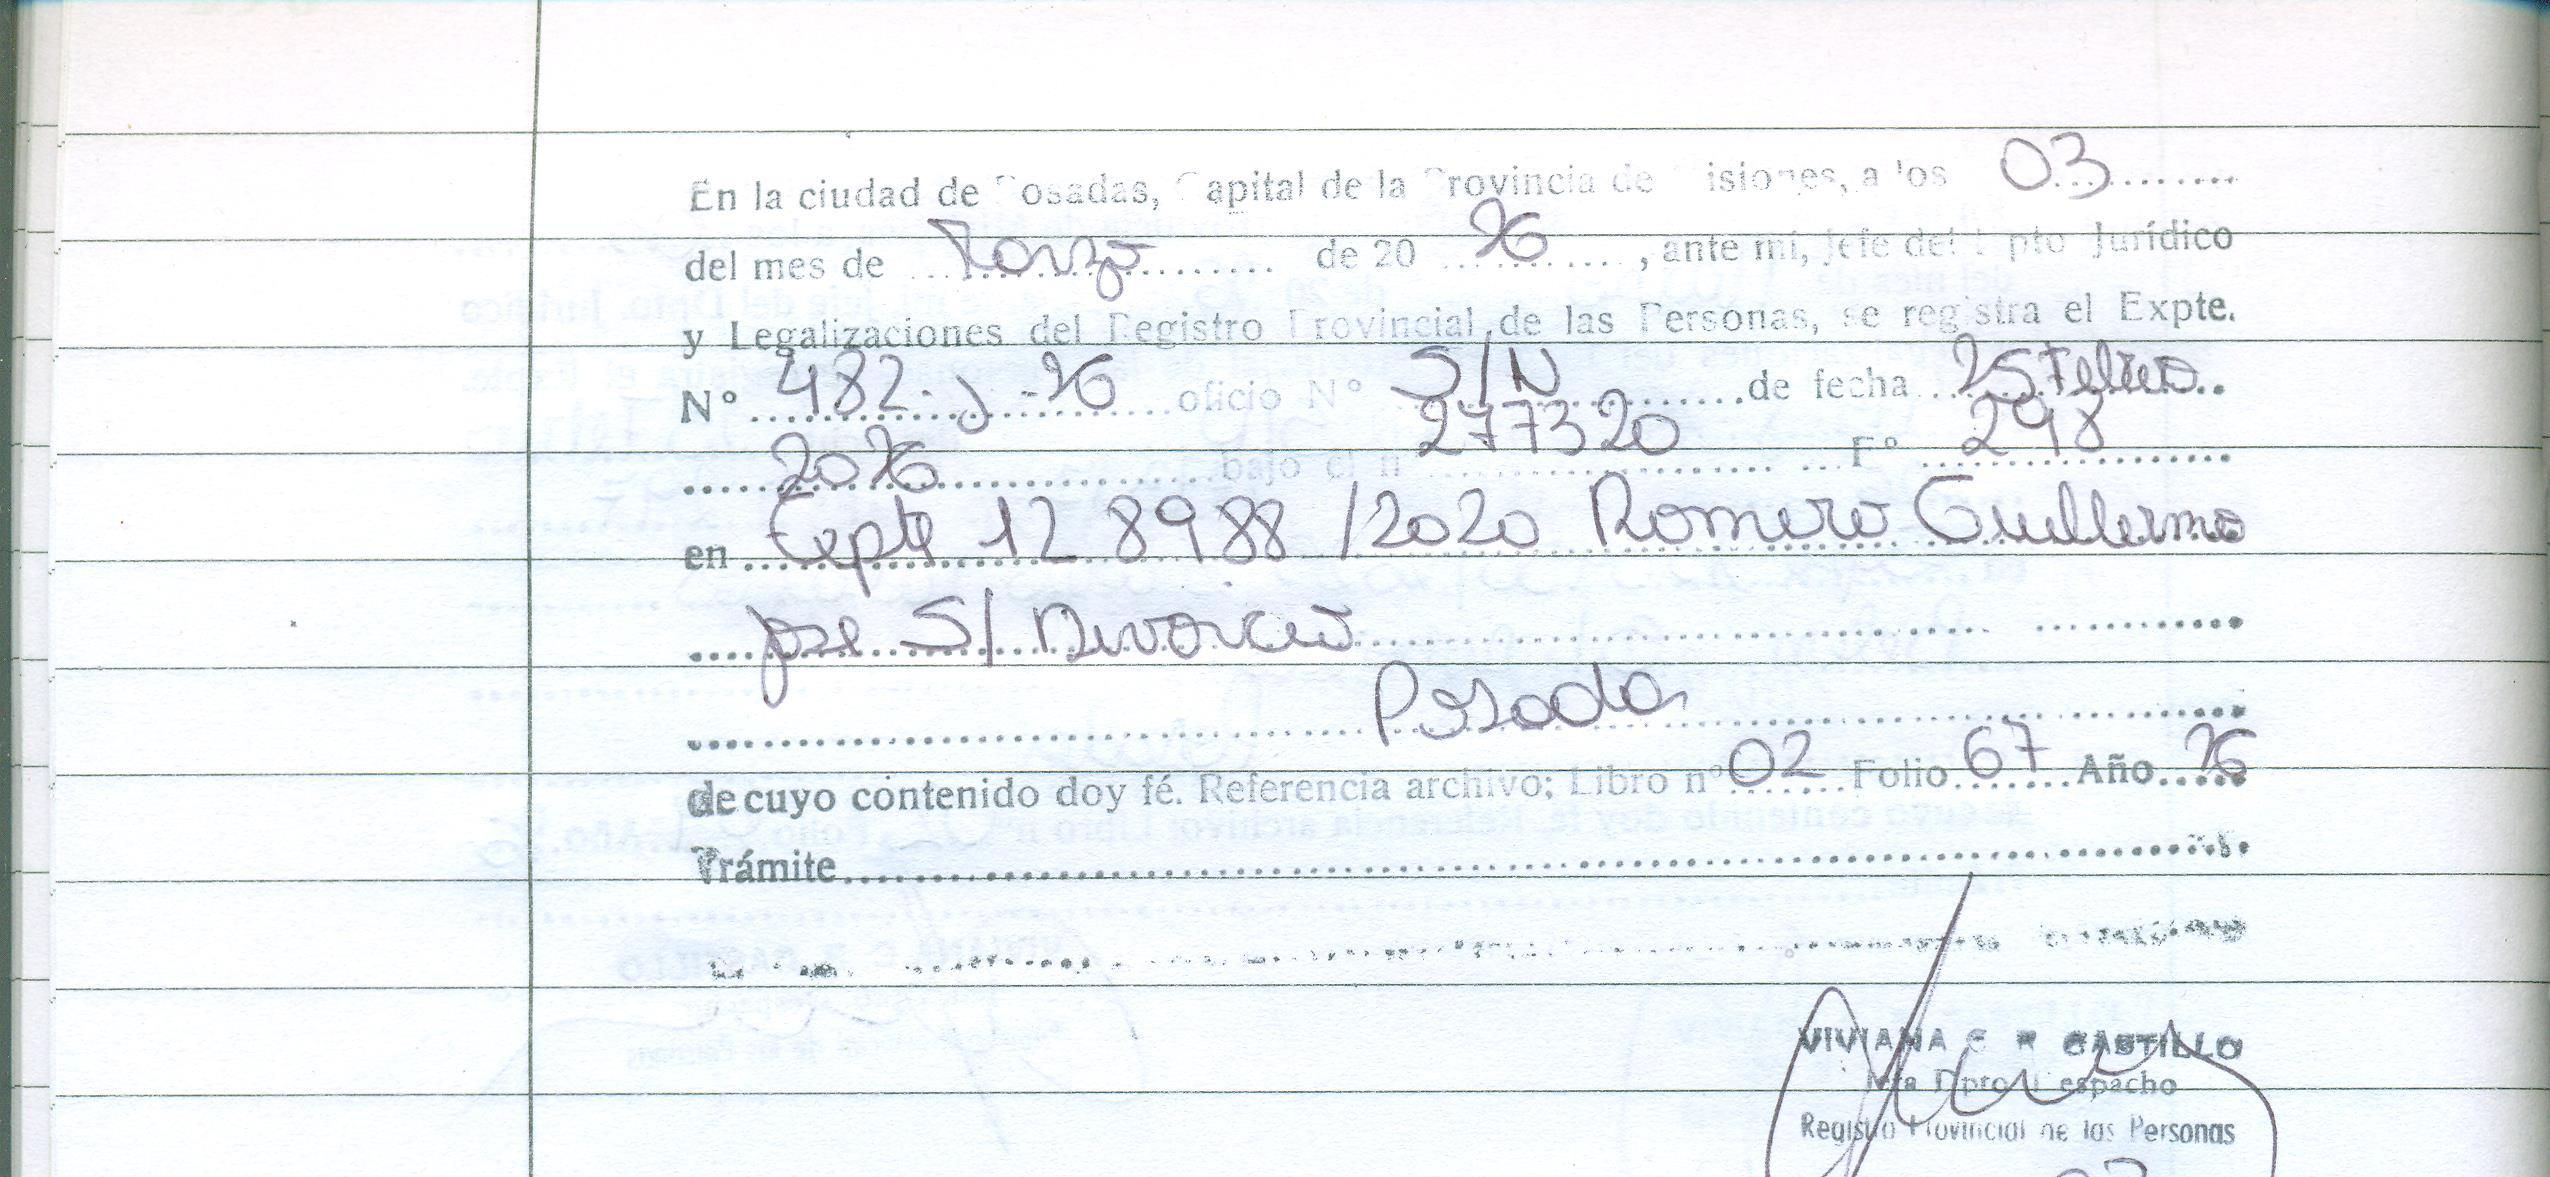 En la ciudad de Posadas, Capital de la Provincia de Misiones, a los 03
del mes de Marzo de 20 26, ante mi, Jefe del Dpto Jurídico
y Legalizaciones del Registro Provincial de las Personas, se registra el Expte.
N° 482-J-26 oficio N° S/N de fecha 25 Febrero
2026 bajo el n° 277320 F° 298
en Expte 128988/2020 Romero Guillermo
Jose S/ Divorcio
Posadas
de cuyo contenido doy fé. Referencia archivo; Libro n° 02 Folio 67 Año 26
Trámite
VIVIANA CASTILLO
Jefa Dpto Despacho
Registro Provincial de las Personas